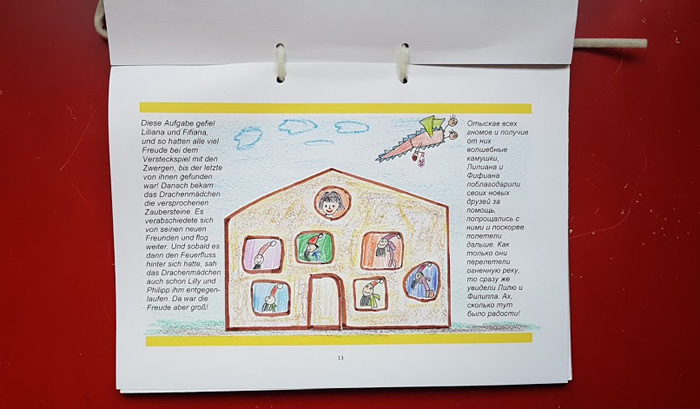 Diese Aufgabe gefiel
Liliana und Fifiana,
und so hatten alle viel
Freude bei dem
Versteckspiel mit den
Zwergen, bis der letzte
von ihnen gefunden
war! Danach bekam
das Drachenmädchen
die versprochenen
Zaubersteine. Es
verabschiedete sich
von seinen neuen
Freunden und flog
weiter. Und sobald es
dann den Feuerfluss
hinter sich hatte, sah
das Drachenmädchen
auch schon Lilly und
Philipp ihm entgegen-
laufen. Da war die
Freude aber groß!
Отыскав всех
гномов и получив
от них
волшебные
камушки,
Лилиана и
Фифиана
поблагодарили
своих новых
друзей за
помощь,
попрощались с
ними и поскорее
полетели
дальше. Как
только они
перелетели
огненную реку,
то сразу же
увидели Лилю и
Филиппа. Ах,
сколько тут
было радости!
13